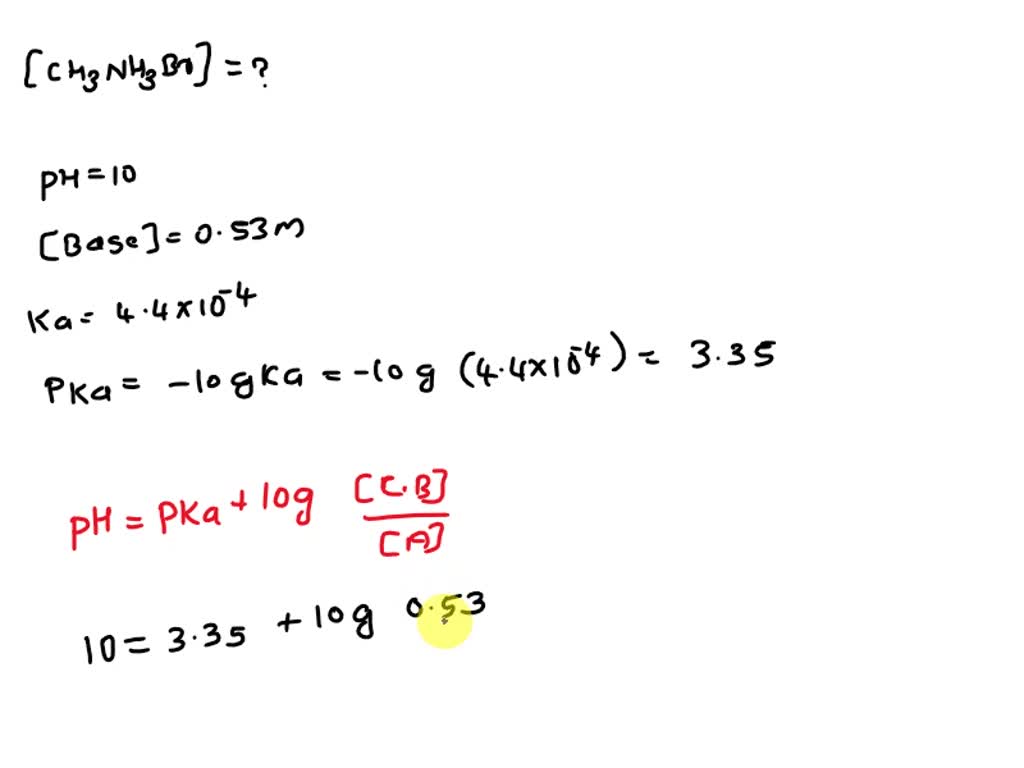 [CH3NH3Br] = ?
pH = 10
[Base] = 0.53M
Ka = 4.4×10^-4
PKa = -log Ka = -log (4.4×10^-4) = 3.35
pH = PKa + log [C.B]/[A]
10 = 3.35 + log 0.53